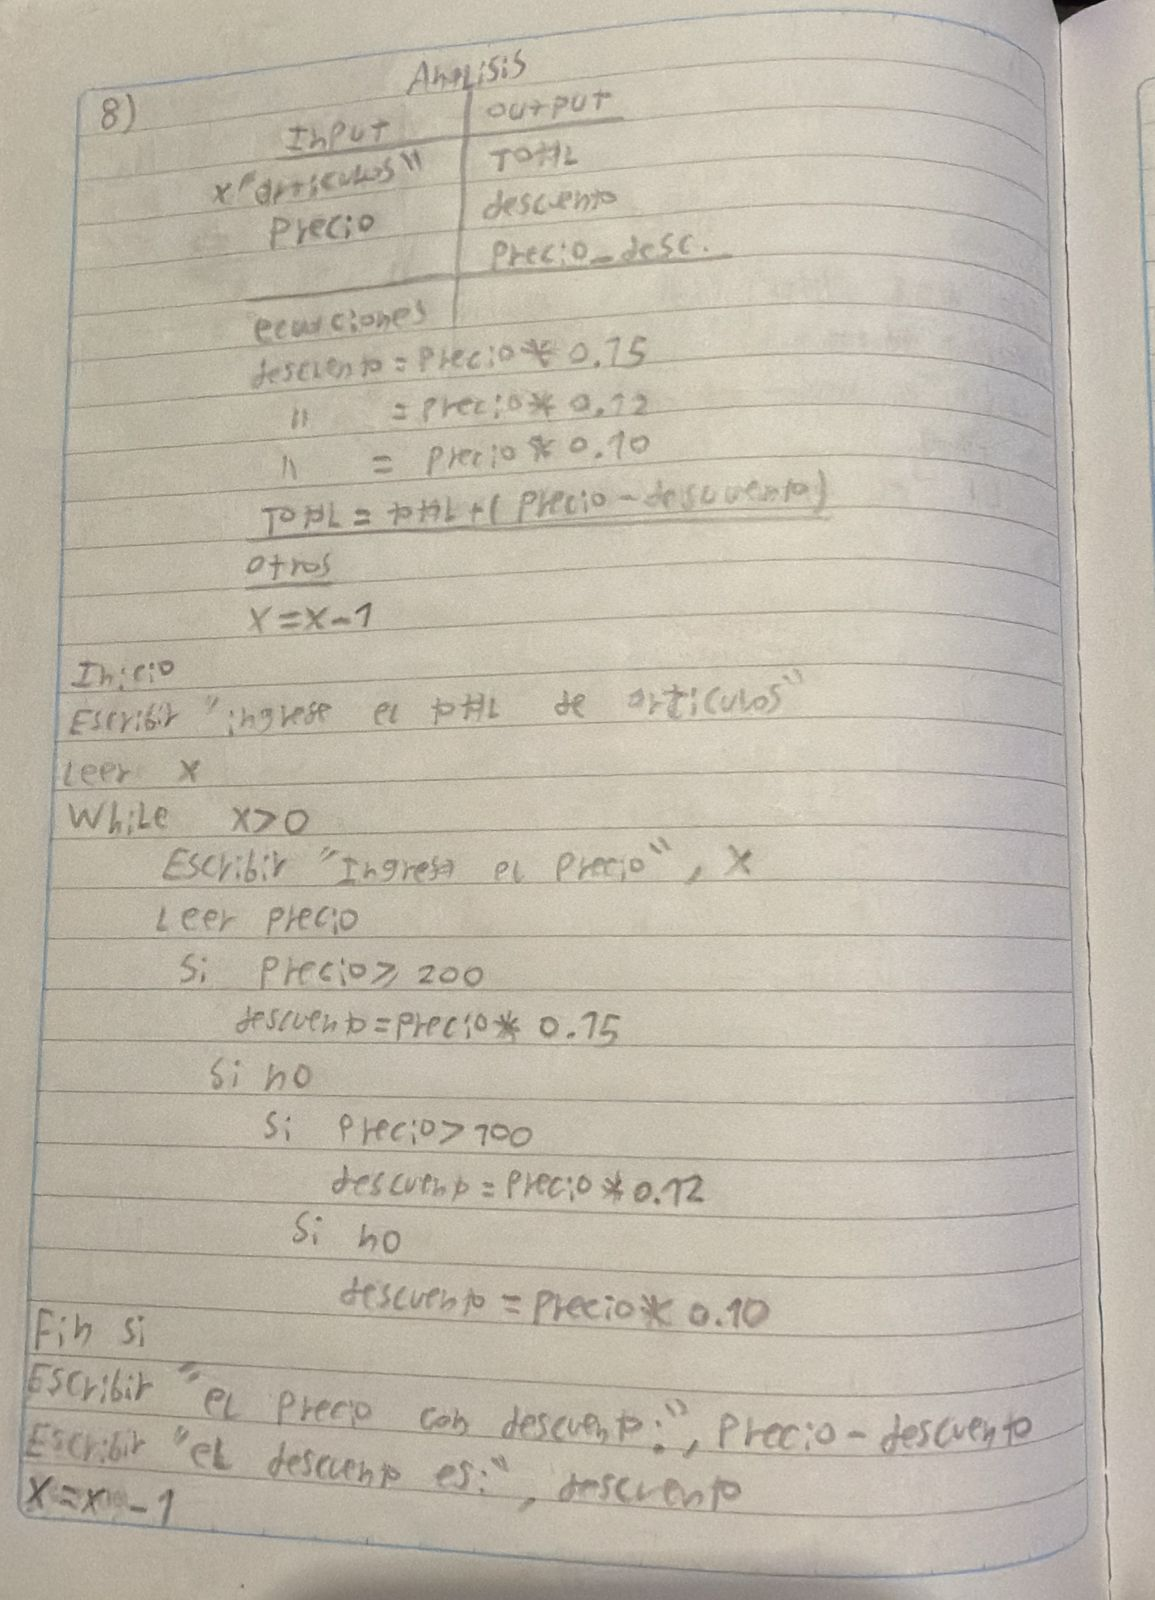 8)
Analisis
Input
output
x "articulos"
Total
Precio
descuento
Precio_desc.
ecuaciones
descuento = Precio * 0.15
" = precio * 0.12
" = precio * 0.10
Total = total + ( precio - descuento)
otros
X = x - 1
Inicio
Escribir "ingrese el total de articulos"
Leer x
While x > 0
Escribir "Ingresa el Precio", X
Leer precio
Si Precio ≥ 200
descuento = precio * 0.15
Si no
Si Precio > 100
descuento = Precio * 0.12
Si no
descuento = precio * 0.10
Fin si
Escribir "el precio con descuento:", Precio - descuento
Escribir "el descuento es:", descuento
X = x - 1